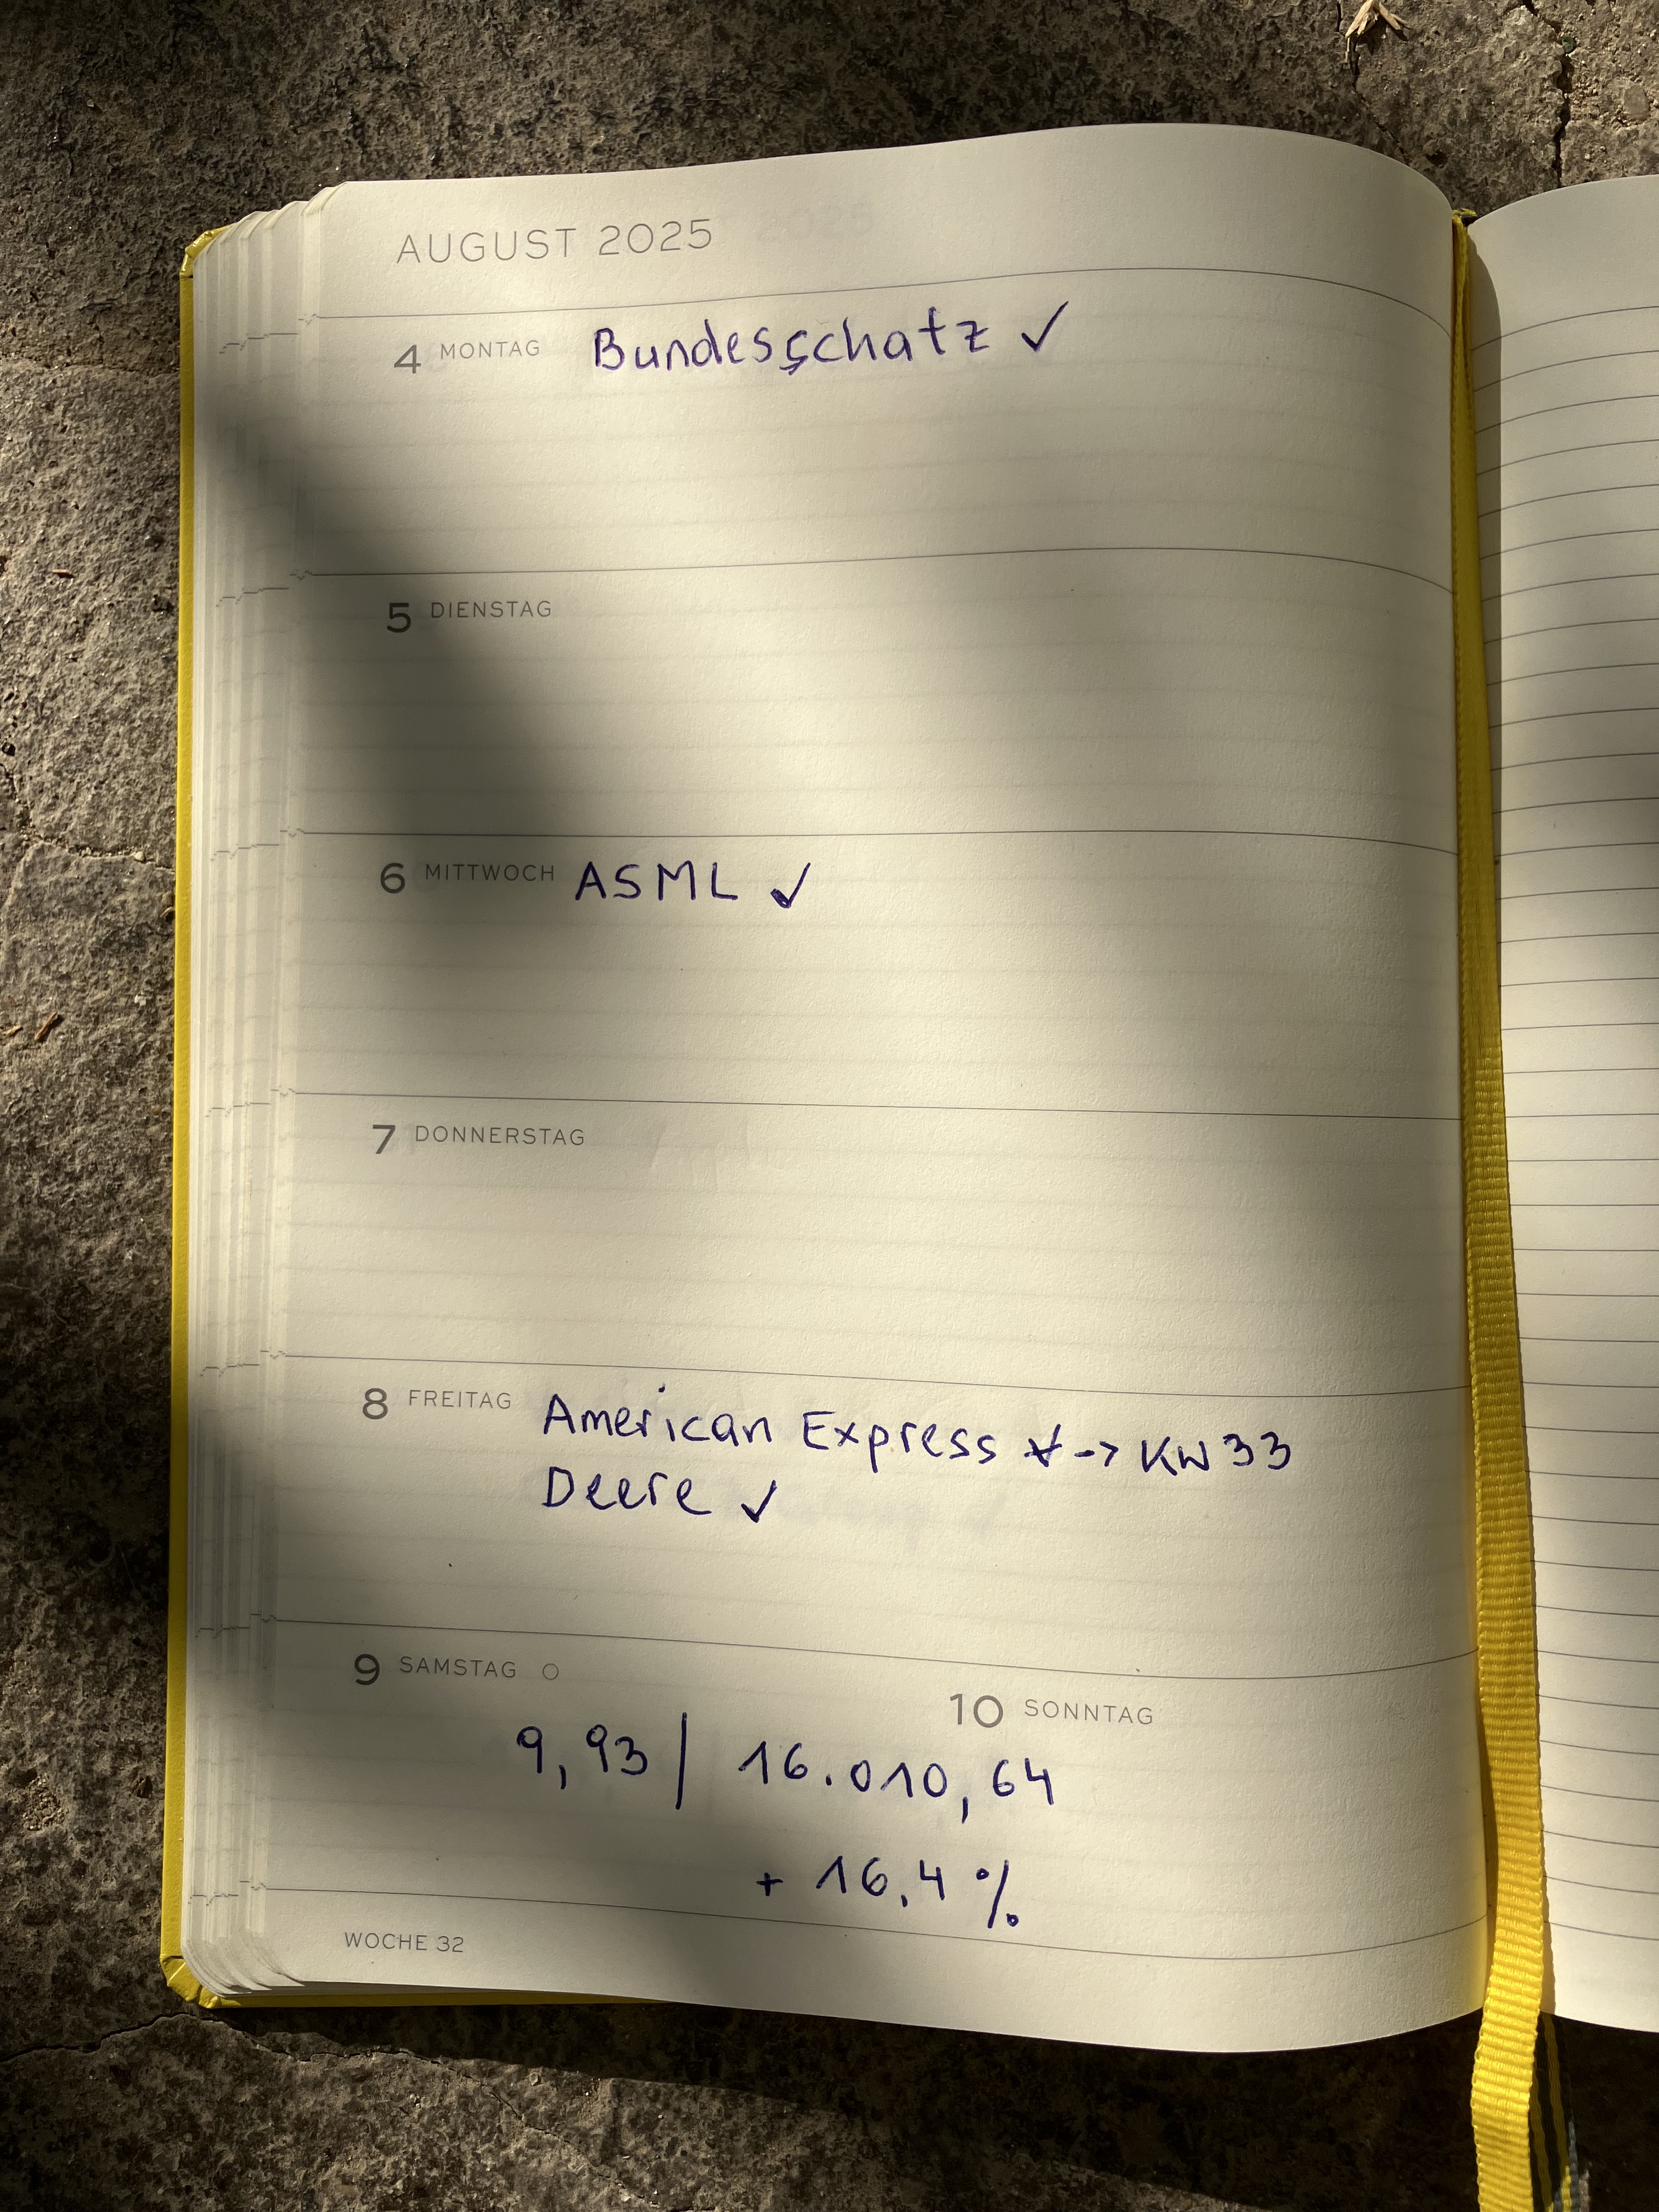 AUGUST 2025
4 MONTAG Bundesschatz ✓
5 DIENSTAG
6 MITTWOCH ASML ✓
7 DONNERSTAG
8 FREITAG American Express -> KW 33
Deere ✓
9 SAMSTAG ○
10 SONNTAG
9,93 | 16.010,64
+ 16,4 %
WOCHE 32